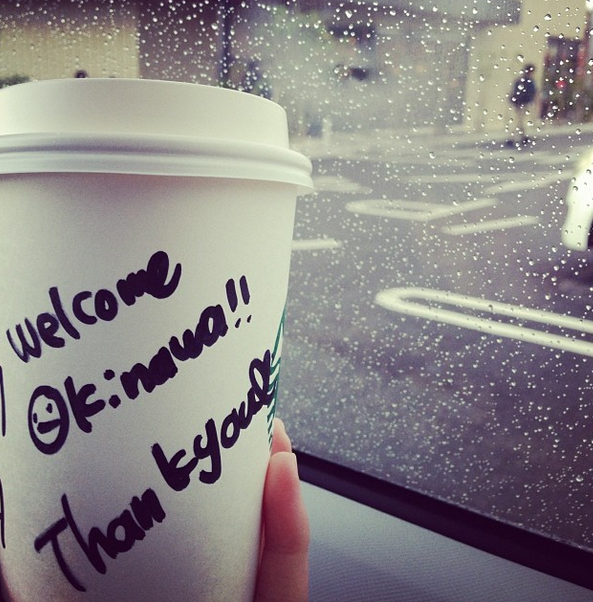 Welcome
Okinawa!!
Thankyou